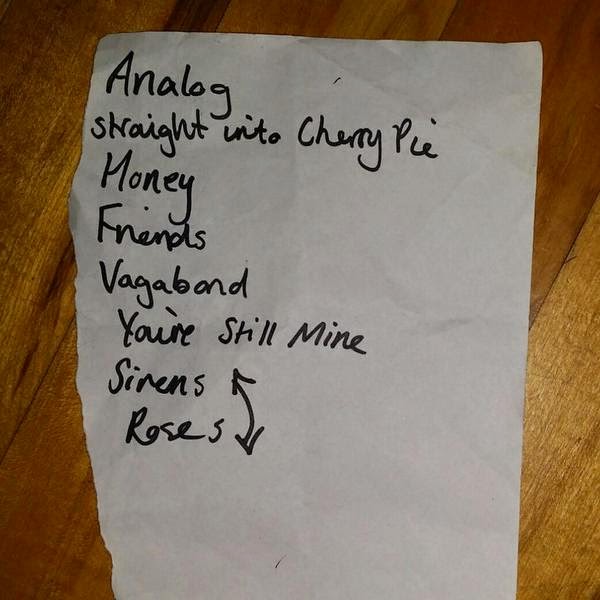 Analog
straight into Cherry Pie
Money
Friends
Vagabond
You're Still Mine
Sirens
Roses